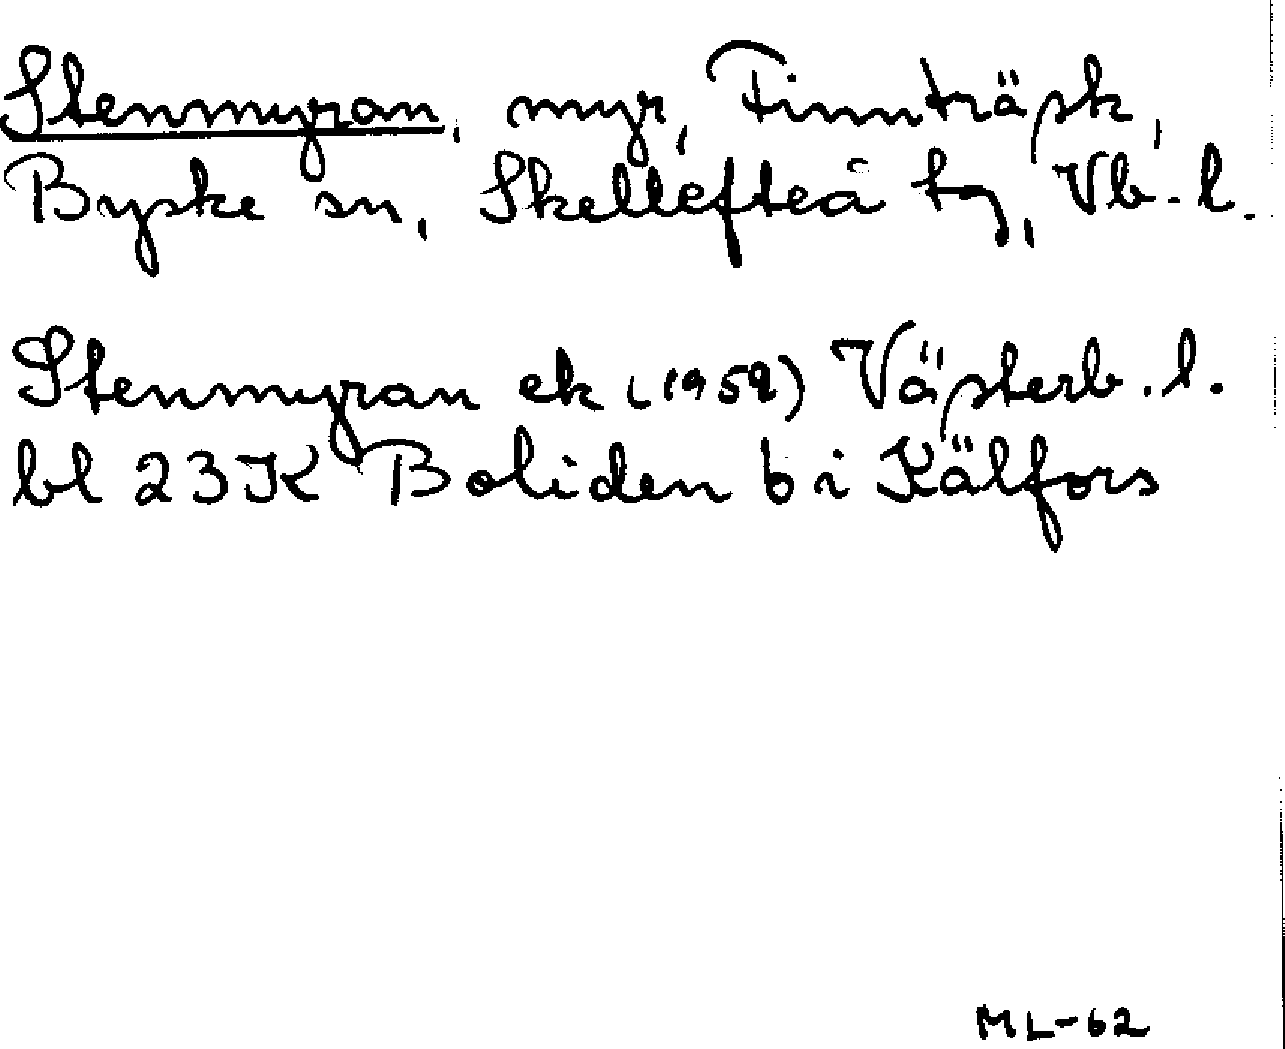 Stenmyran, myr, Finnträsk,
Byske sn, Skellefteå tg, Vb. l.
Stenmyran ek (1959) Västerb. l.
bl 23K Boliden b i Kälfors
ML-62